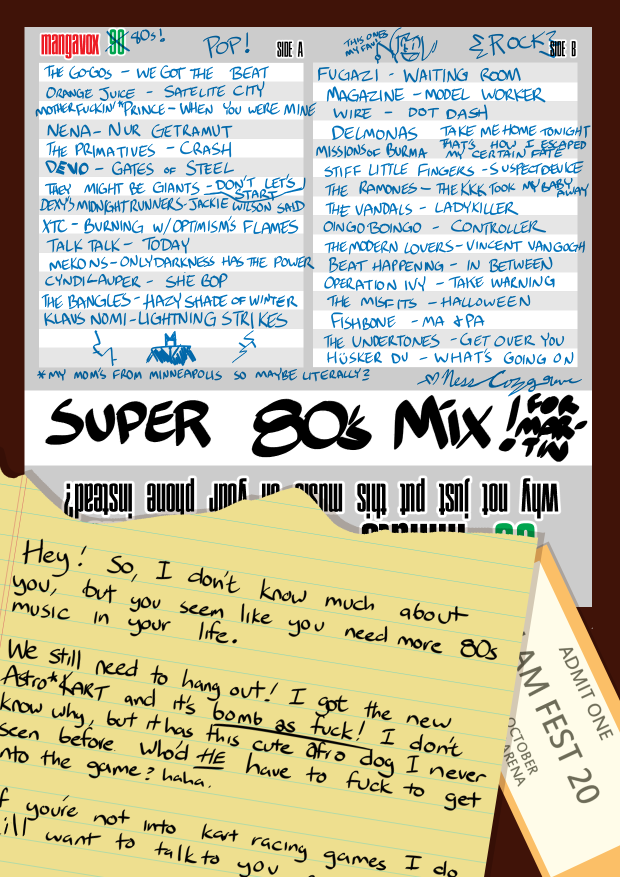 mangavox 90 80's!
POP!
SIDE A
THE GO-GOS – WE GOT THE BEAT
ORANGE JUICE – SATELITE CITY
MOTHERFUCKIN'*PRINCE – WHEN YOU WERE MINE
NENA – NUR GETRAMUT
THE PRIMATIVES – CRASH
DEVO – GATES OF STEEL
THEY MIGHT BE GIANTS – DON'T LET'S START
DEXY'S MIDNIGHT RUNNERS – JACKIE WILSON SAID
XTC – BURNING W/OPTIMISM'S FLAMES
TALK TALK – TODAY
MEKONS – ONLY DARKNESS HAS THE POWER
CYNDI LAUPER – SHE BOP
THE BANGLES – HAZY SHADE OF WINTER
KLAUS NOMI – LIGHTNING STRIKES
*MY MOM'S FROM MINNEAPOLIS SO MAYBE LITERALLY?
THIS ONE'S
MY FAV!
ROCK
SIDE B
FUGAZI – WAITING ROOM
MAGAZINE – MODEL WORKER
WIRE – DOT DASH
DELMONAS TAKE ME HOME TONIGHT
MISSIONS OF BURMA THAT'S HOW I ESCAPED
MY CERTAIN FATE
STIFF LITTLE FINGERS – SUSPECT DEVICE
THE RAMONES – THE KKK TOOK MY BABY
AWAY
THE VANDALS – LADYKILLER
OINGO BOINGO – CONTROLLER
THE MODERN LOVERS – VINCENT VAN GOGH
BEAT HAPPENING – IN BETWEEN
OPERATION IVY – TAKE WARNING
THE MISFITS – HALLOWEEN
FISHBONE – MA & PA
THE UNDERTONES – GET OVER YOU
HÜSKER DU – WHAT'S GOING ON
♡Ness Cozgrove
SUPER 80's MIX!
! FOR
MAR-
TIN
why not just put this music on your phone instead?
90
Hey! So, I don't know much about
you, but you seem like you need more 80s
music in your life.
We still need to hang out! I got the new
Astro*KART and it's bomb as fuck! I don't
know why, but it has this cute afro dog I never
seen before. Who'd HE have to fuck to get
nto the game? haha.
f you're not into kart racing games I do
ill want to talk to you
ADMIT ONE
AM FEST 20
OCTOBER
ARENA